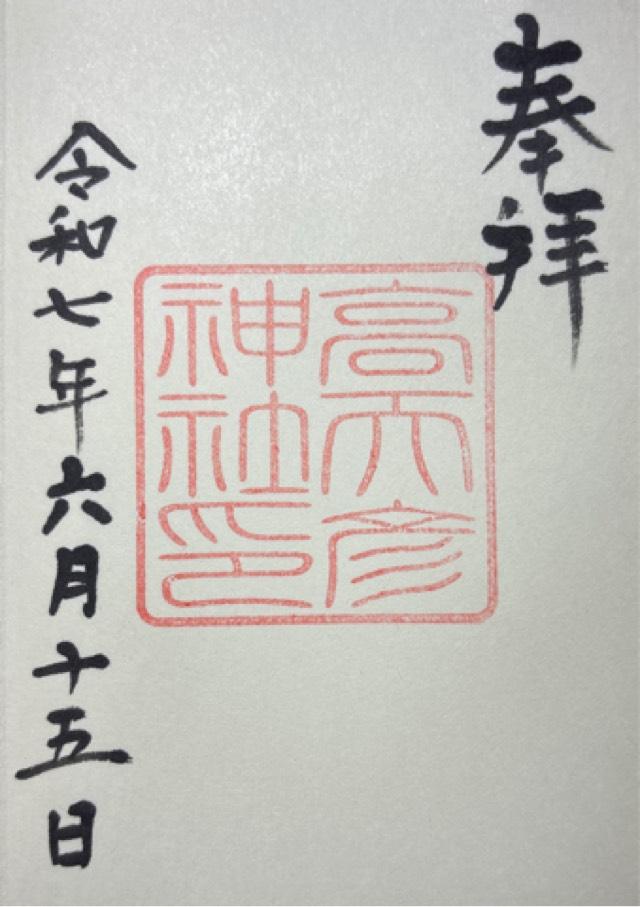 奉拝
高天彦
神社印
令和七年六月十五日